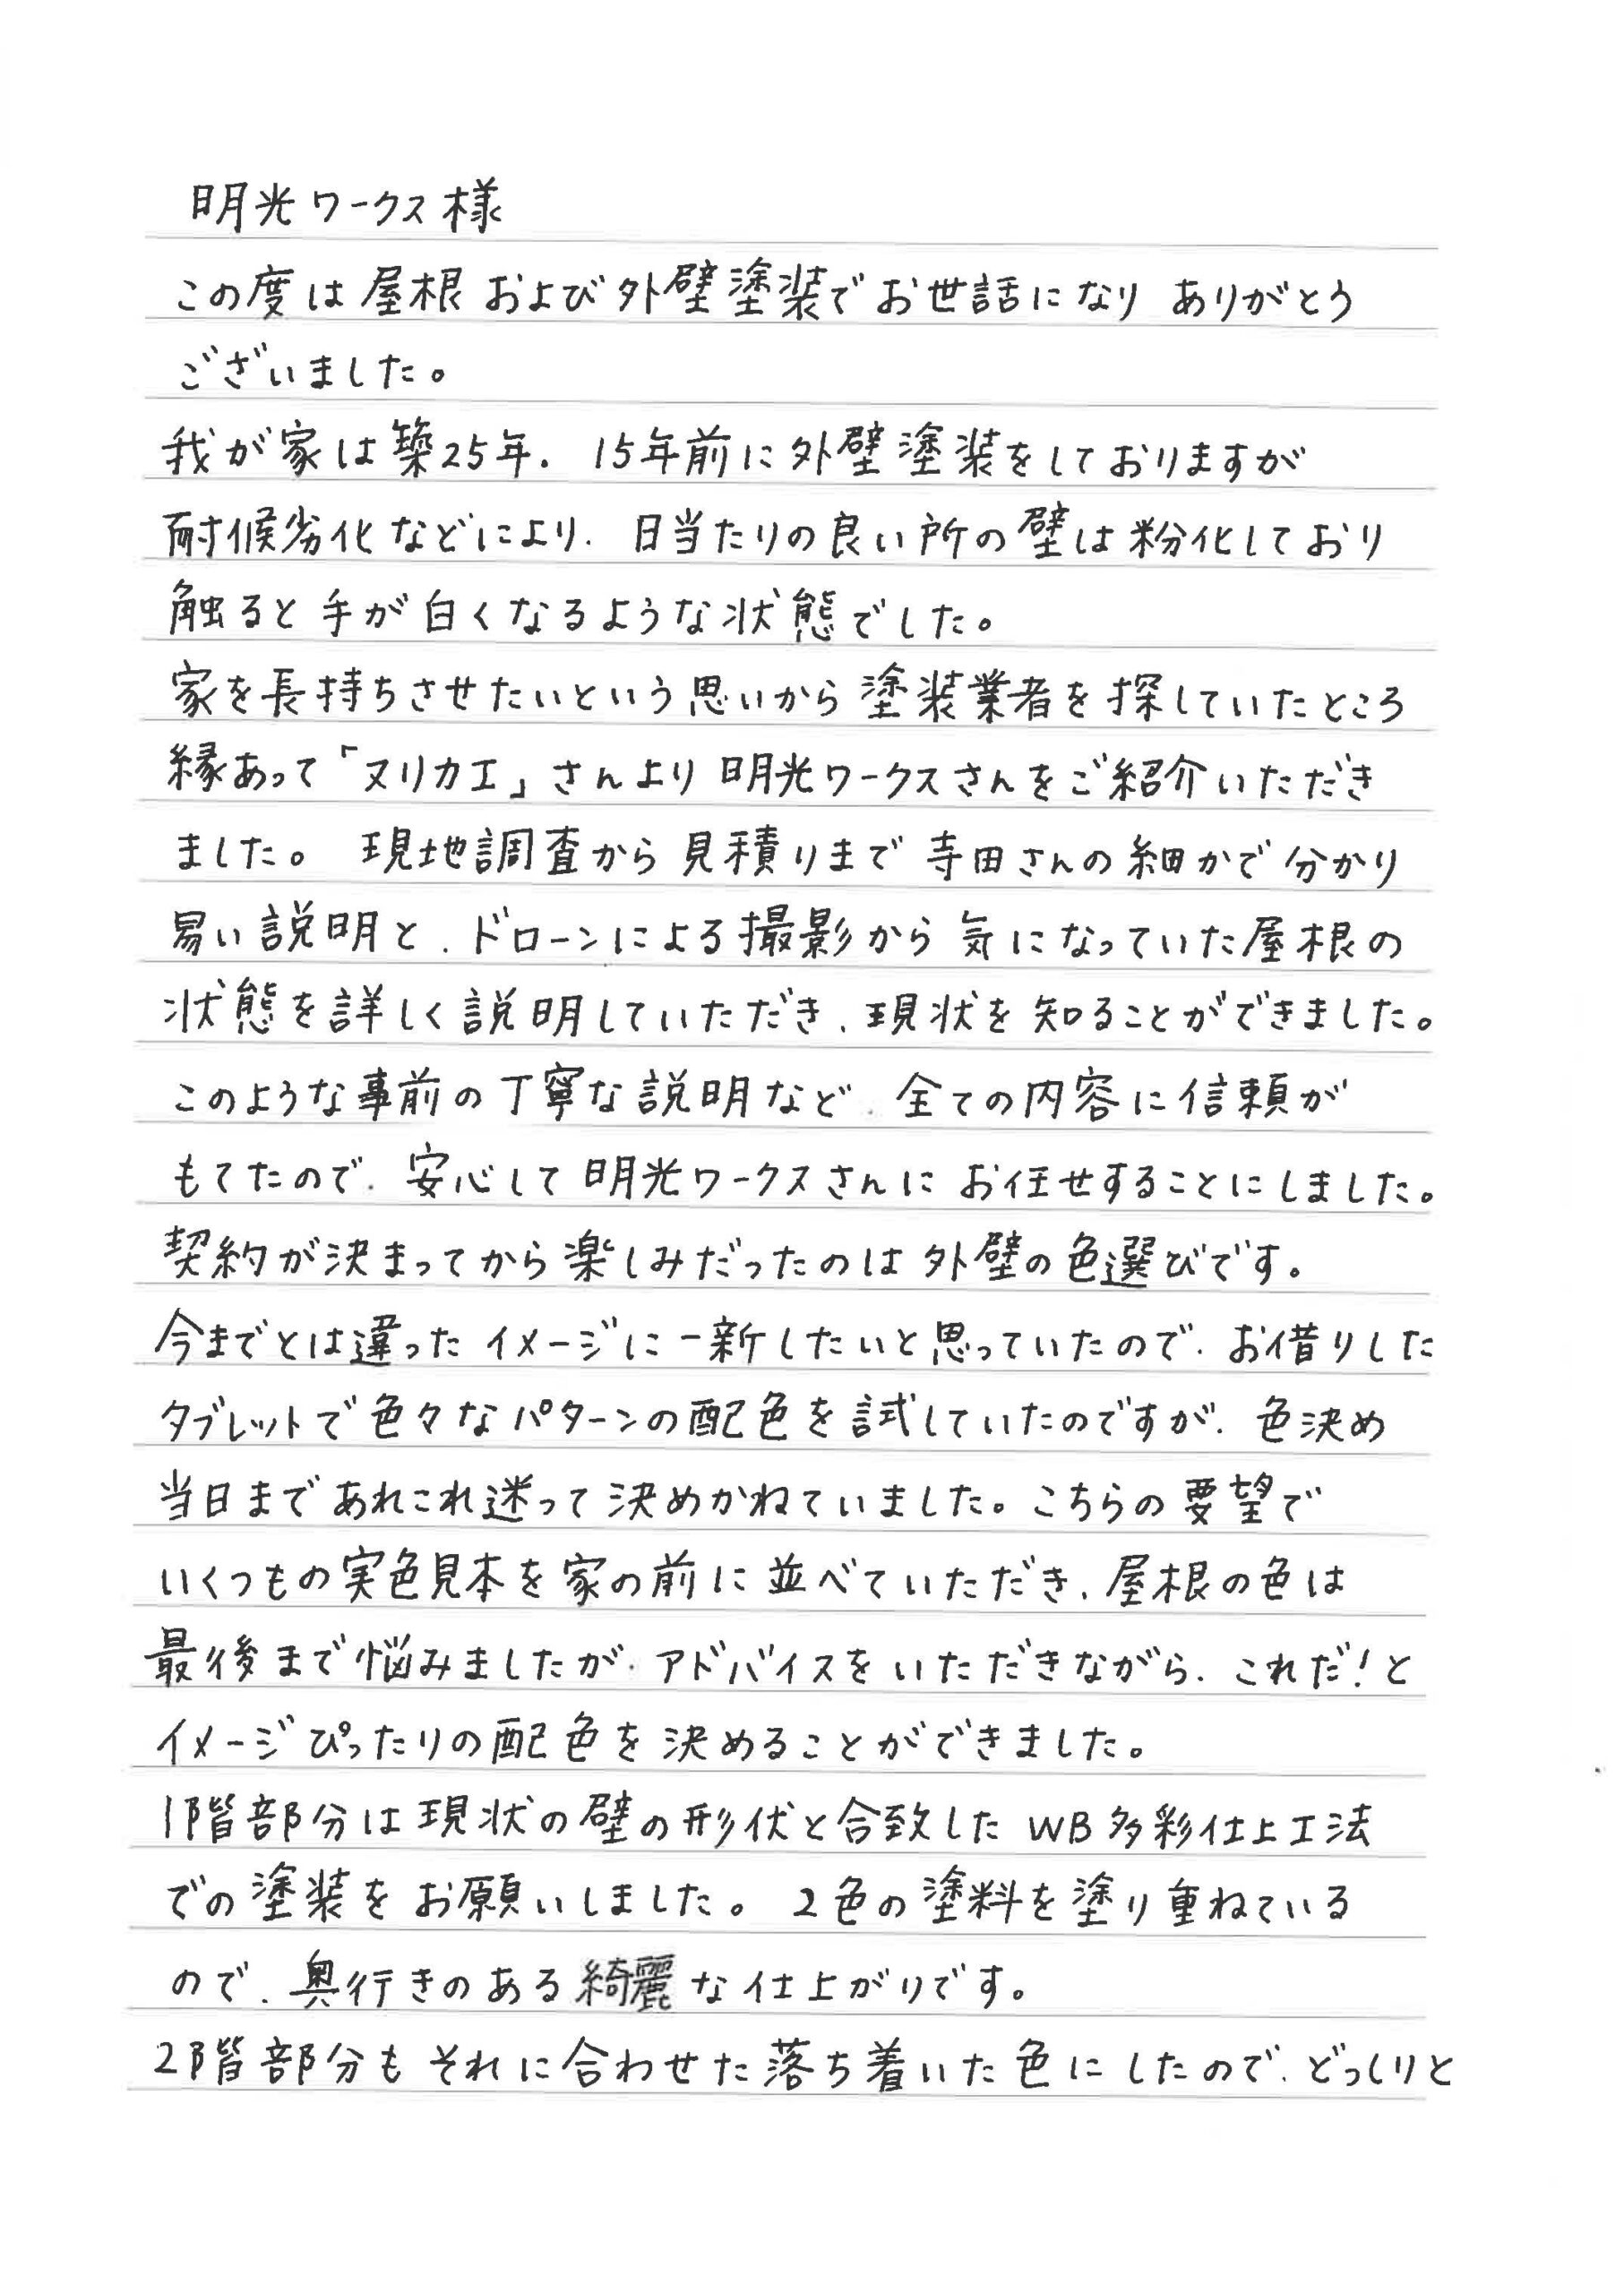 明光ワークス様
この度は屋根および外壁塗装でお世話になり ありがとう
ございました。
我が家は築25年、15年前に外壁塗装をしておりますが
耐候劣化などにより、日当たりの良い所の壁は粉化しており
触ると手が白くなるような状態でした。
家を長持ちさせたいという思いから塗装業者を探していたところ
縁あって「ヌリカエ」さんより明光ワークスさんをご紹介いただき
ました。 現地調査から見積りまで寺田さんの細かで分かり
易い説明と、ドローンによる撮影から気になっていた屋根の
状態を詳しく説明していただき、現状を知ることができました。
このような事前の丁寧な説明など、全ての内容に信頼が
もてたので、安心して明光ワークスさんにお任せすることにしました。
契約が決まってから楽しみだったのは外壁の色選びです。
今までとは違ったイメージに一新したいと思っていたので、お借りした
タブレットで色々なパターンの配色を試していたのですが、色決め
当日まであれこれ迷って決めかねていました。こちらの要望で
いくつもの実色見本を家の前に並べていただき、屋根の色は
最後まで悩みましたが、アドバイスをいただきながら、これだ!と
イメージぴったりの配色を決めることができました。
1階部分は現状の壁の形状と合致したWB多彩仕上工法
での塗装をお願いしました。2色の塗料を塗り重ねている
ので、奥行きのある綺麗な仕上がりです。
2階部分もそれに合わせた落ち着いた色にしたので、どっしりと